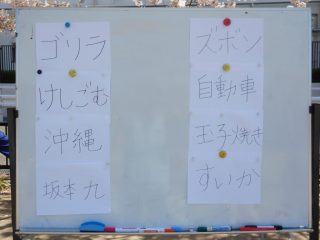 ゴリラ
けしごむ
沖縄
坂本 九
ズボン
自動車
玉子焼き
すいか